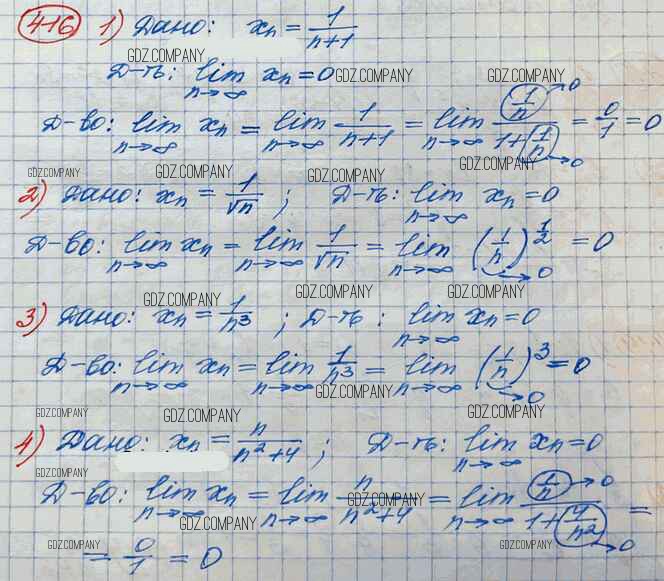 416 1) Дано: xₙ = 1/(n+1)
GDZ.COMPANY
Д-ть: lim n→∞ xₙ = 0 GDZ.COMPANY GDZ.COMPANY
Д-во: lim n→∞ xₙ = lim n→∞ 1/(n+1) = lim n→∞ (1/n →0)/(1+1/n →0) = 0/1 = 0
GDZ.COMPANY GDZ.COMPANY GDZ.COMPANY GDZ.COMPANY
2) Дано: xₙ = 1/√n ; Д-ть: lim n→∞ xₙ = 0
Д-во: lim n→∞ xₙ = lim n→∞ 1/√n = lim n→∞ (1/n →0)^(1/2) = 0
GDZ.COMPANY GDZ.COMPANY GDZ.COMPANY
3) Дано: xₙ = 1/n³ ; Д-ть: lim n→∞ xₙ = 0
Д-во: lim n→∞ xₙ = lim n→∞ 1/n³ = lim n→∞ (1/n →0)³ = 0
GDZ.COMPANY GDZ.COMPANY GDZ.COMPANY GDZ.COMPANY
4) Дано: xₙ = n/(n²+4) ; Д-ть: lim n→∞ xₙ = 0
GDZ.COMPANY
Д-во: lim n→∞ xₙ = lim n→∞ n/(n²+4) = lim n→∞ (1/n →0)/(1+4/n² →0) =
GDZ.COMPANY GDZ.COMPANY
= 0/1 = 0
GDZ.COMPANY GDZ.COMPANY